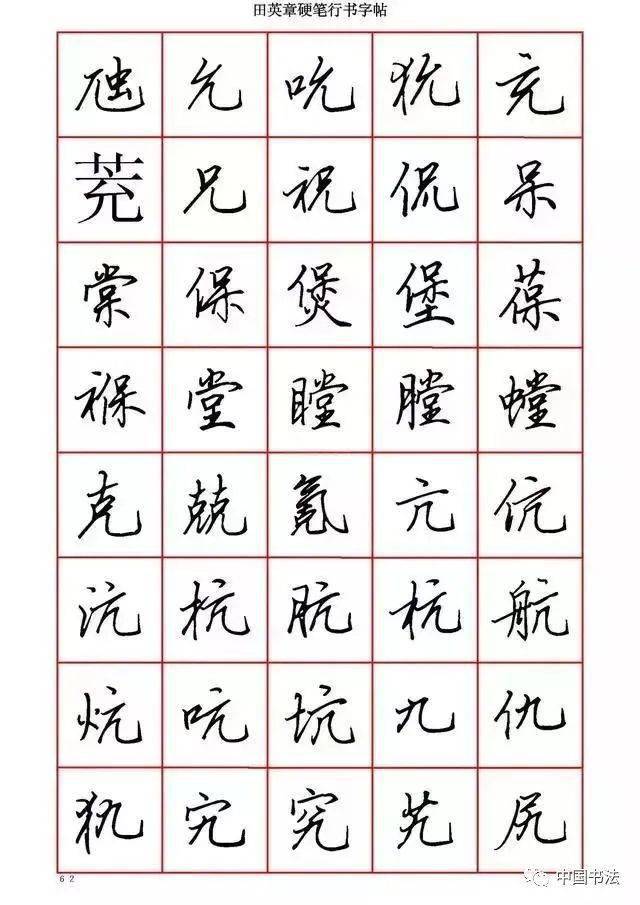 田英章硬笔行书字帖
允 吮 犹 充
茺 兄 祝 侃 呆
棠 保 煲 堡 葆
褓 堂 瞠 膛 螳
克 兢 氪 亢 伉
沆 抗 肮 杭 航
炕 吭 坑 九 仇
犰 宄 究 艽 尻
62
中国书法